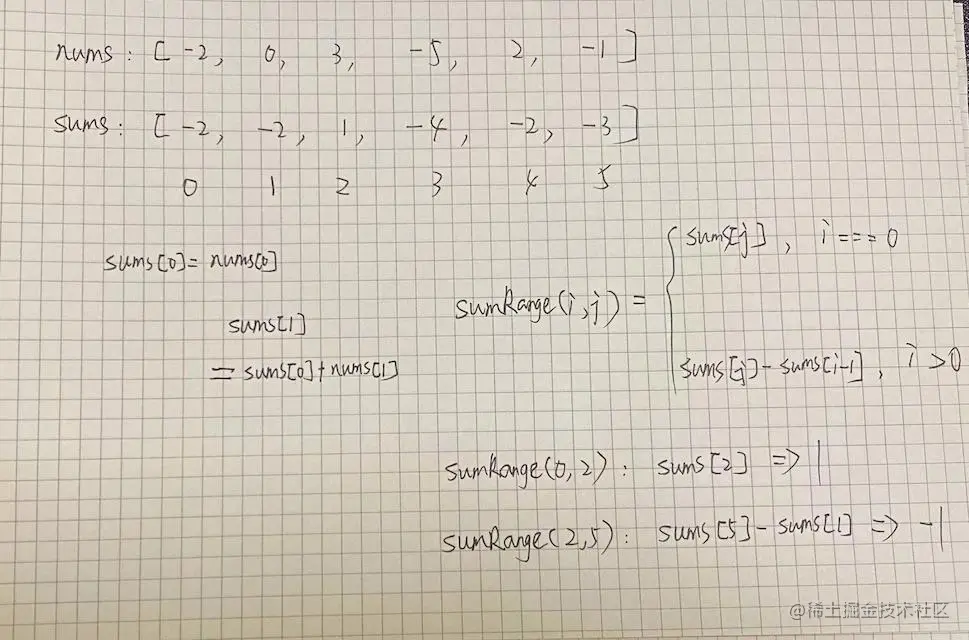 nums : [ -2, 0, 3, -5, 2, -1 ]
sums : [ -2, -2, 1, -4, -2, -3 ]
0 1 2 3 4 5
sums[j] , i === 0
sums[0] = nums[0]
sumRange(i,j) =
sums[1]
= sums[0]+nums[1]
sums[j]-sums[i-1] , i >0
sumRange(0,2) : sums[2] => 1
sumRange(2,5) : sums[5]-sums[1] => -1
@稀土掘金技术社区